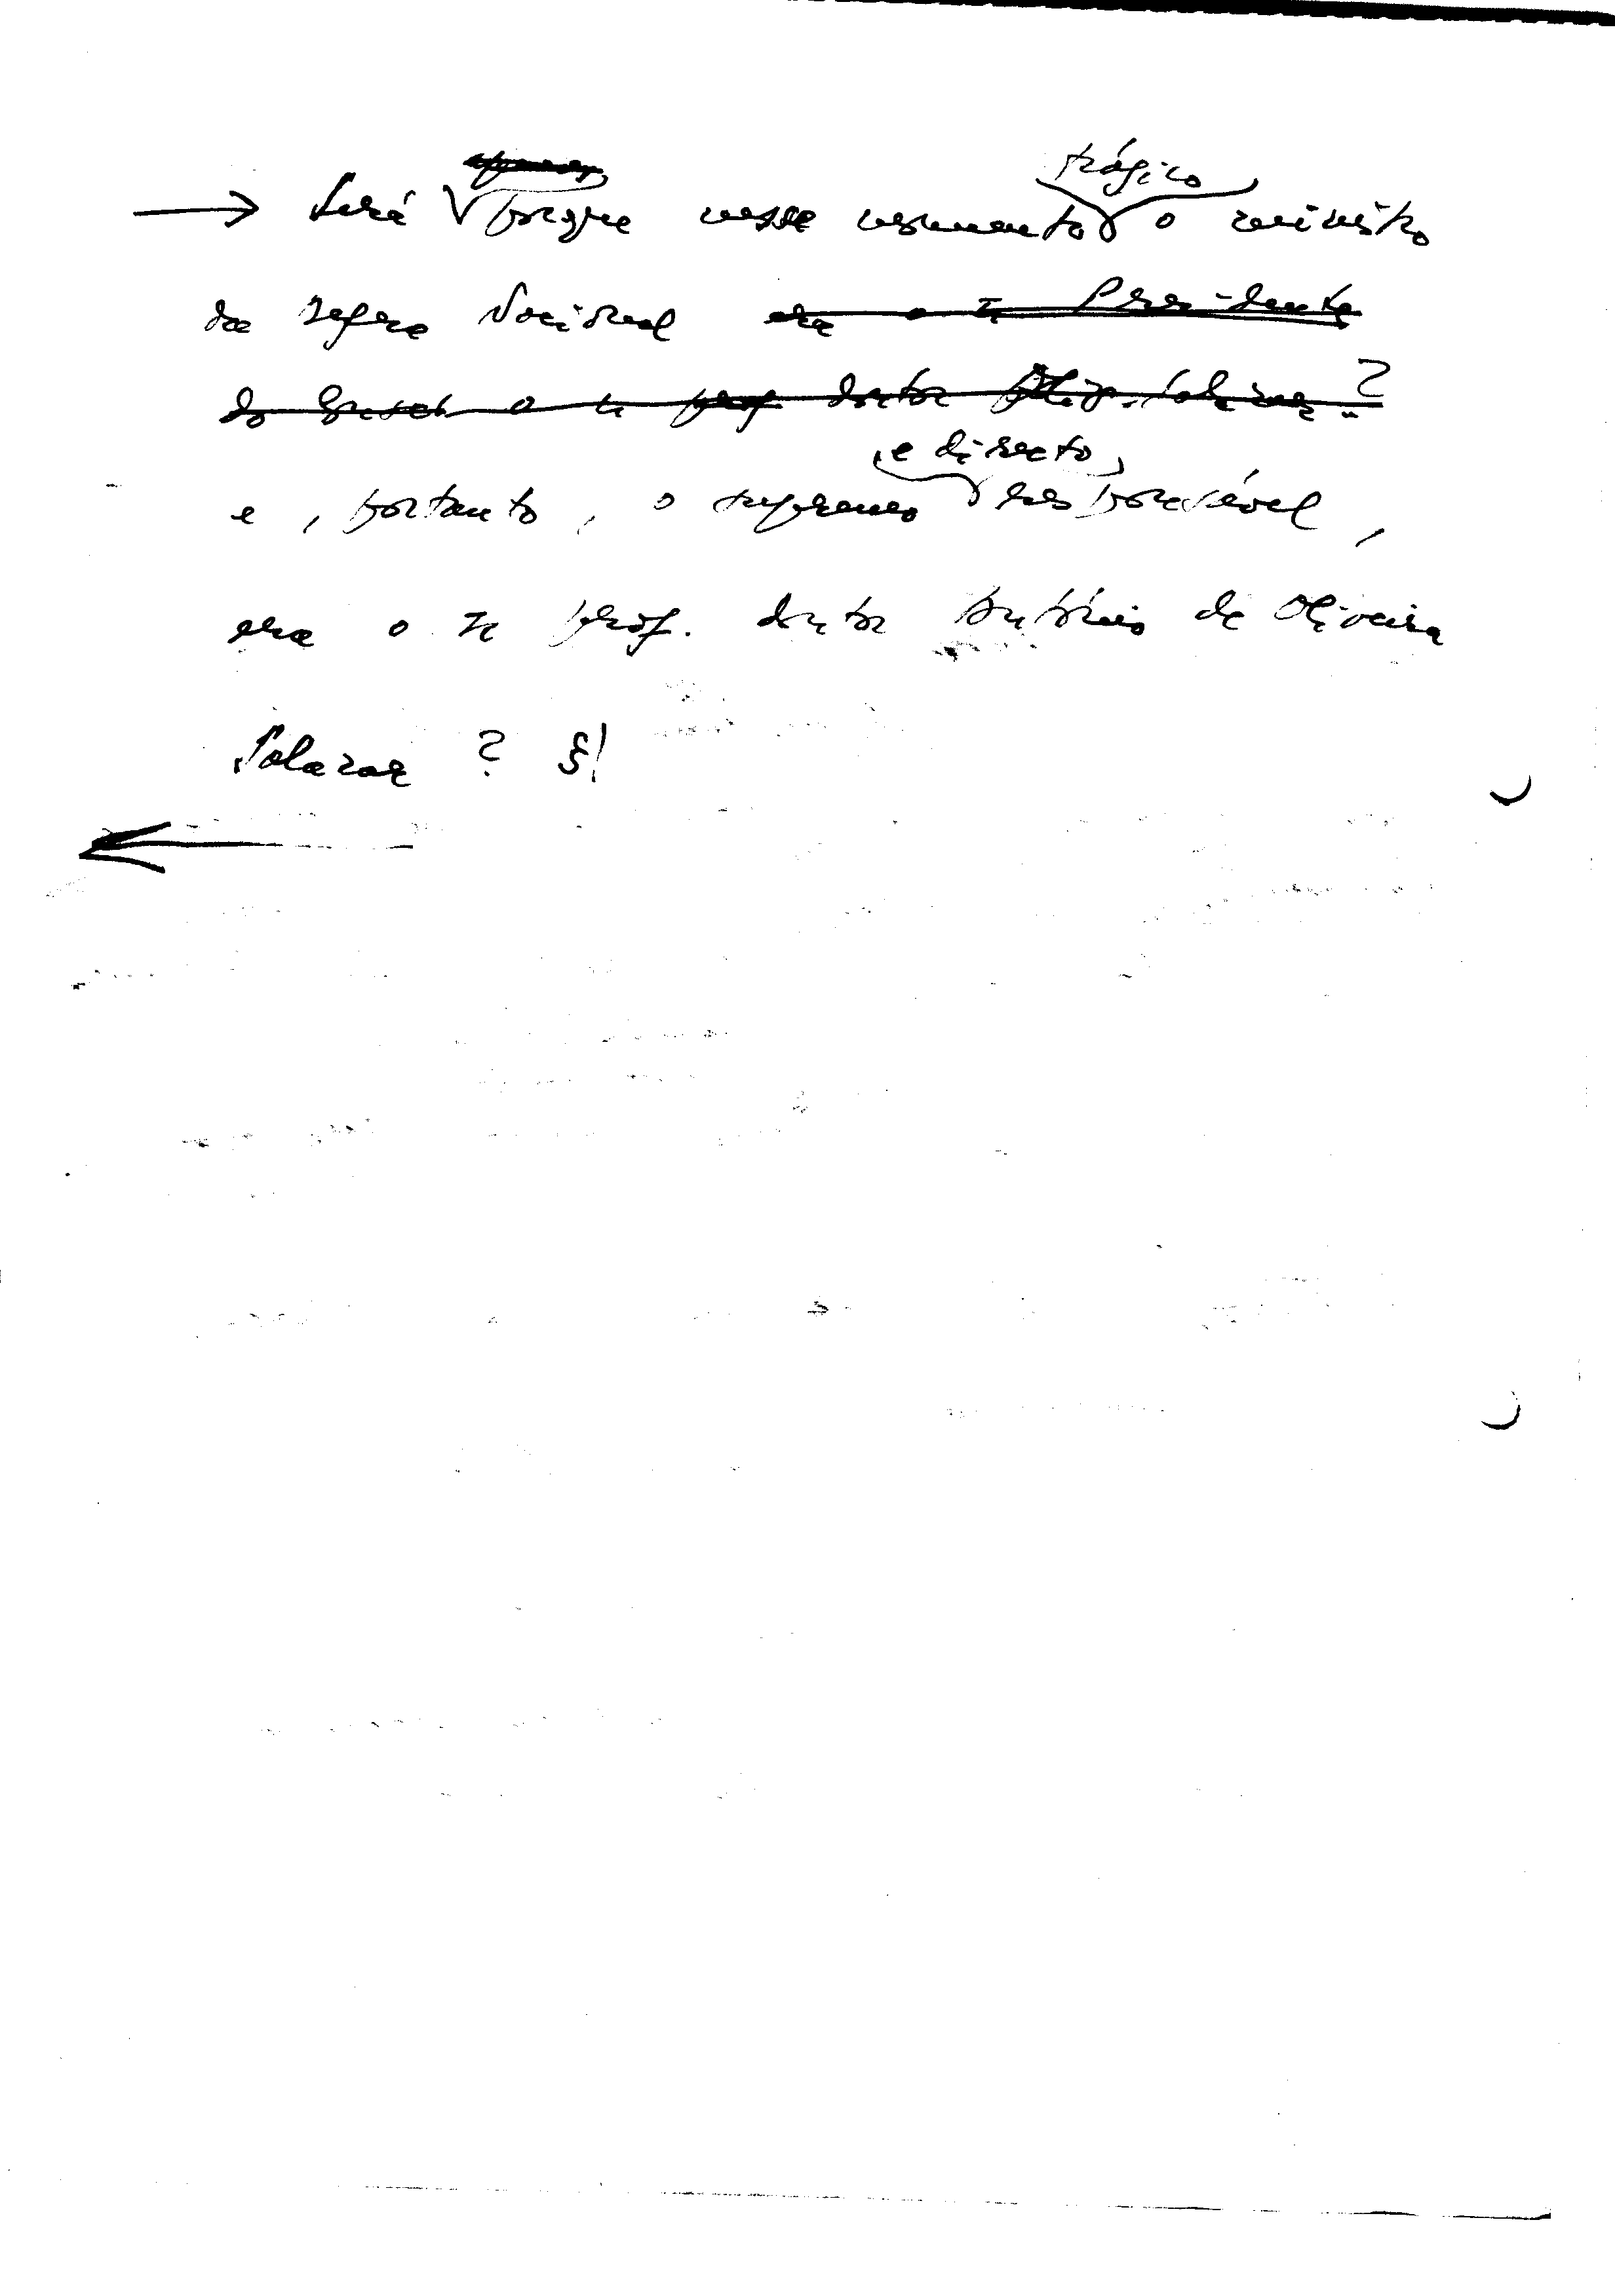 → Será porque nesse momento trágico o ministro
da Defesa Nacional era o sr Presidente
do o sr prof. doutor Oliv. Salazar?
e, portanto, o supremo e directo responsável,
era o sr prof. doutor António de Oliveira
Salazar? §!
←